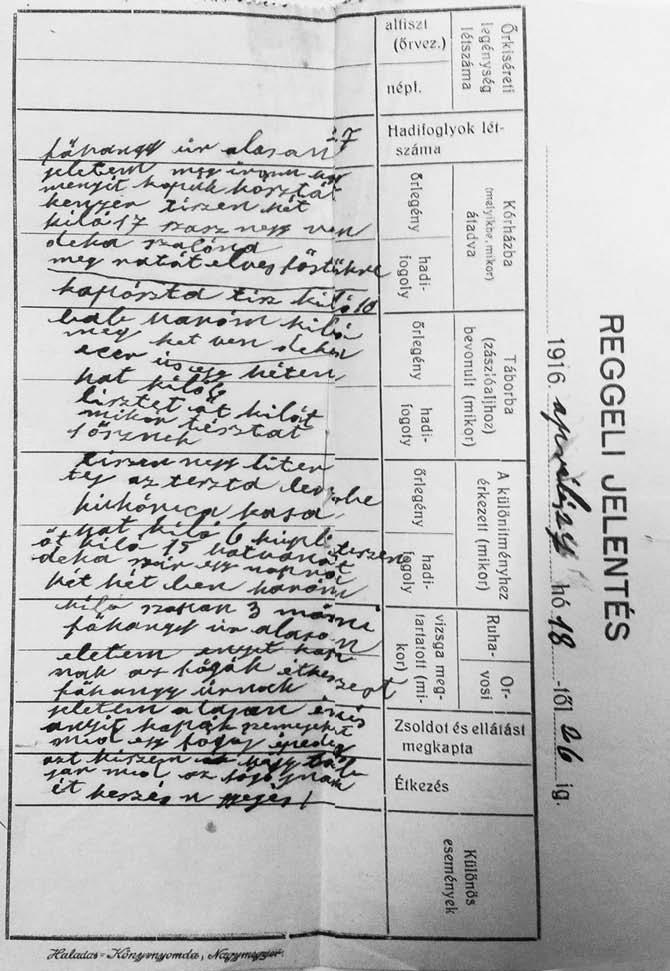 REGGELI JELENTÉS
1916. április hó 18 -tól 26 ig.
Őrkiséreti
legénység
létszáma
altiszt
(őrvez.)
népf.
Hadifoglyok lét-
száma
Kórházba
(melyikbe, mikor)
átadva
őrlegény
hadi-
fogoly
Táborba
(zászlóaljhoz)
bevonult (mikor)
őrlegény
hadi-
fogoly
A különítményhez
érkezett (mikor)
őrlegény
hadi-
fogoly
Ruha-
Or-
vosi
vizsga meg-
tartatott (mi-
kor)
Zsoldot és ellátást
megkapta
Étkezés
Különös
események
27
főhangy úr alasan
jeletem meg
menyit kapuk kosztát
kenyer tiszen két
kiló 17 szasz negy ven
deka szalona
meg
kapószta tisz kiló 10
bab három kiló
meg het ven deka
ecer is egy héten
hat kiló 6
lisztet öt kilót
mikor tésztát
fősznek
tiszen negy liter
tej az teszta
kukórica kasa
hat kiló 6 tiszen
öt kiló 15 hatvanöt
deka egy napra
két hét ben három
kiló szapan 3
főhangy úr alasan
eletem enyit kap
nak az fógák étkeszest
főhangy úrnak
jeletem alasan
anyit kapók szemejeket
mint egy fogoj
azt hiszem
jár mint az fogojnak
ét keszés n
Haladas-Könyvnyomda, Nagymegyer.